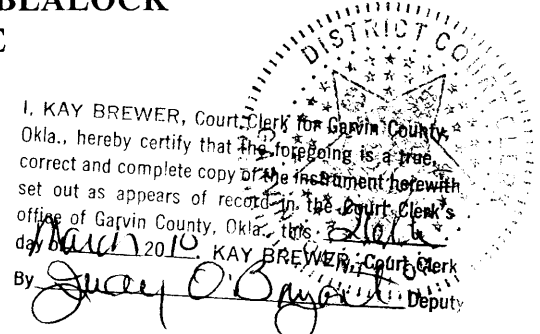 BLALOCK
E
DISTRICT COURT CLERK
I, KAY BREWER, Court Clerk for Garvin County,
Okla., hereby certify that the foregoing is a true,
correct and complete copy of the instrument herewith
set out as appears of record in the Court Clerk's
office of Garvin County, Okla., this
day of March 2010, KAY BREWER, Court Clerk
By Judy O'Bryant Deputy